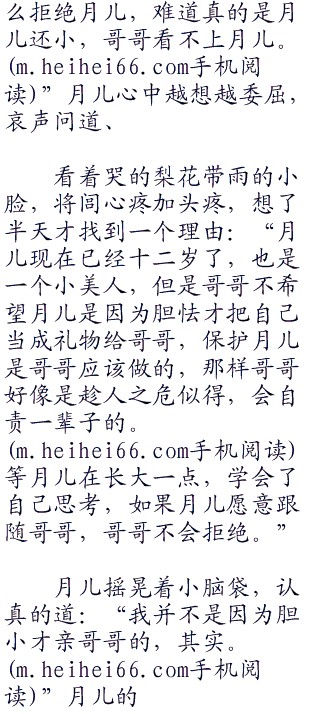 么拒绝月儿，难道真的是月
儿还小，哥哥看不上月儿。
(m.heihei66.com手机阅
读)”月儿心中越想越委屈，
哀声问道、
看着哭的梨花带雨的小
脸，将闾心疼加头疼，想了
半天才找到一个理由：“月
儿现在已经十二岁了，也是
一个小美人，但是哥哥不希
望月儿是因为胆怯才把自己
当成礼物给哥哥，保护月儿
是哥哥应该做的，那样哥哥
好像是趁人之危似得，会自
责一辈子的。
(m.heihei66.com手机阅读)
等月儿在长大一点，学会了
自己思考，如果月儿愿意跟
随哥哥，哥哥不会拒绝。”
月儿摇晃着小脑袋，认
真的道：“我并不是因为胆
小才亲哥哥的，其实。
(m.heihei66.com手机阅
读)”月儿的